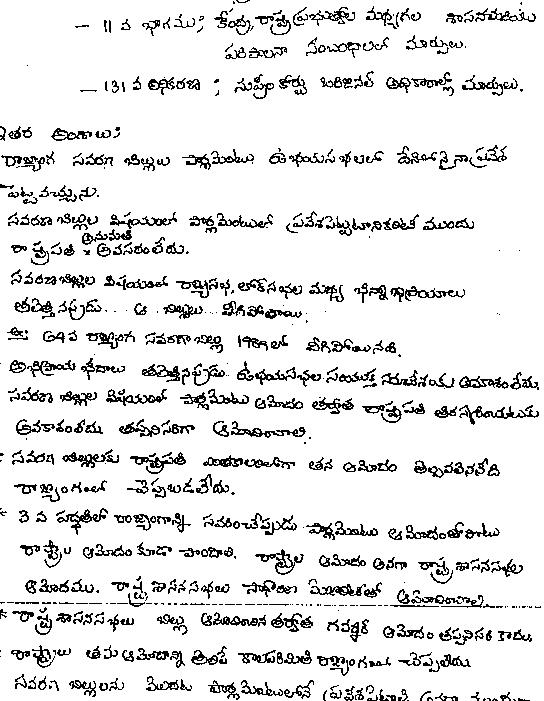 — 11 వ భాగము ; కేంద్ర, రాష్ట్ర ప్రభుత్వాల మధ్యగల శాసనమరియు
పరిపాలనా సంబంధాలలో మార్పులు.
— 131 వ అధికరణ ; సుప్రీం కోర్టు ఒరిజినల్ అధికారాల్లో మార్పులు.
ఇతర అంశాలు :
రాజ్యాంగ సవరణ బిల్లులు పార్లమెంటు ఉభయసభలలో దేనిలోనైనా ప్రవేశ
పెట్టవచ్చును.
సవరణ బిల్లుల విషయంలో పార్లమెంటులో ప్రవేశపెట్టటానికంటే ముందు
రాష్ట్రపతి అనుమతి అవసరంలేదు.
సవరణబిల్లుల విషయంలో రాజ్యసభ, లోక్ సభల మధ్య భిన్నాభిప్రాయాలు
తలెత్తినప్పుడు ఆ బిల్లులు వీగిపోతాయి.
ఉ: 64వ రాజ్యాంగ సవరణా బిల్లు 1989లో వీగిపోయినది.
అభిప్రాయ భేదాలు తలెత్తినప్పుడు ఉభయసభల సంయుక్త సమావేశంకు అవకాశంలేదు.
సవరణ బిల్లుల విషయంలో పార్లమెంటు ఆమోదం తర్వాత రాష్ట్రపతి తిరస్కరించుటకు
అవకాశంలేదు తప్పనిసరిగా ఆమోదించాలి.
* సవరణ బిల్లులకు రాష్ట్రపతి ఎంతకాలంలోగా తన ఆమోదం తెల్పవలెననేది
రాజ్యాంగంలో చెప్పబడలేదు.
* 3 వ పద్ధతిలో రాజ్యాంగాన్ని సవరించేప్పుడు పార్లమెంటు ఆమోదంతోపాటు
రాష్ట్రాల ఆమోదం కూడా పొందాలి. రాష్ట్రాల ఆమోదం అనగా రాష్ట్ర శాసనసభల
ఆమోదము. రాష్ట్ర శాసనసభలు సాధారణ మెజారిటీతో ఆమోదించాలి.
* రాష్ట్ర శాసనసభలు బిల్లు ఆమోదించిన తర్వాత గవర్నర్ ఆమోదం తప్పనిసరి కాదు.
రాష్ట్రాలు తమ ఆమోదాన్ని తెలిపే కాలపరిమితి రాజ్యాంగంలో చెప్పలేదు
సవరణ బిల్లులను మొదట పార్లమెంటులోనే ప్రవేశపెట్టాలి